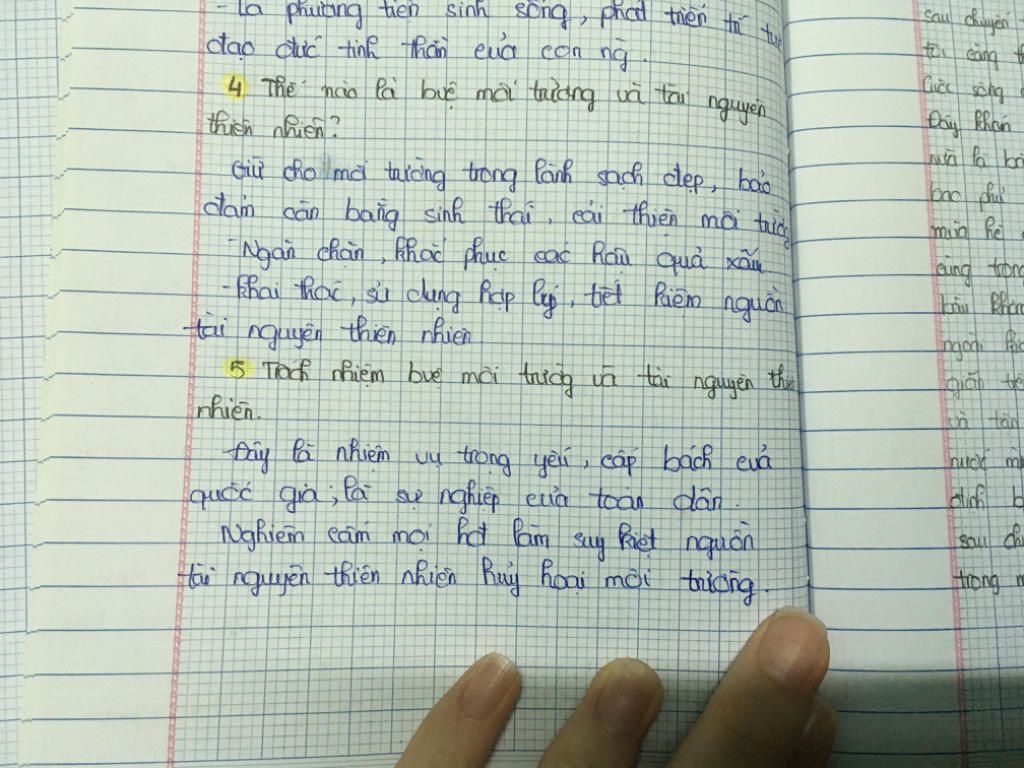 - Là phương tiện sinh sống, phát triển trí tuệ
đạo đức tinh thần của con ng.
4 Thế nào là bvệ môi trường và tài nguyên
thiên nhiên?
Giữ cho môi trường trong lành sạch đẹp, bảo
đảm cân bằng sinh thái, cải thiện môi trường
- Ngăn chặn, khắc phục các hậu quả xấu
- Khai thác, sử dụng hợp lý, tiết kiệm nguồn
tài nguyên thiên nhiên
5 Trách nhiệm bvệ môi trường và tài nguyên thiên
nhiên.
Đây là nhiệm vụ trọng yếu, cấp bách của
quốc gia; là sự nghiệp của toàn dân.
Nghiêm cấm mọi hđ làm suy kiệt nguồn
tài nguyên thiên nhiên huỷ hoại môi trường.
sau chuyến
tôi càng
cuộc sống
Đây khán
nữa là
mùa hè
cũng trong
bầu
ngoài
giãn
và tân
nước
định
sau
trong